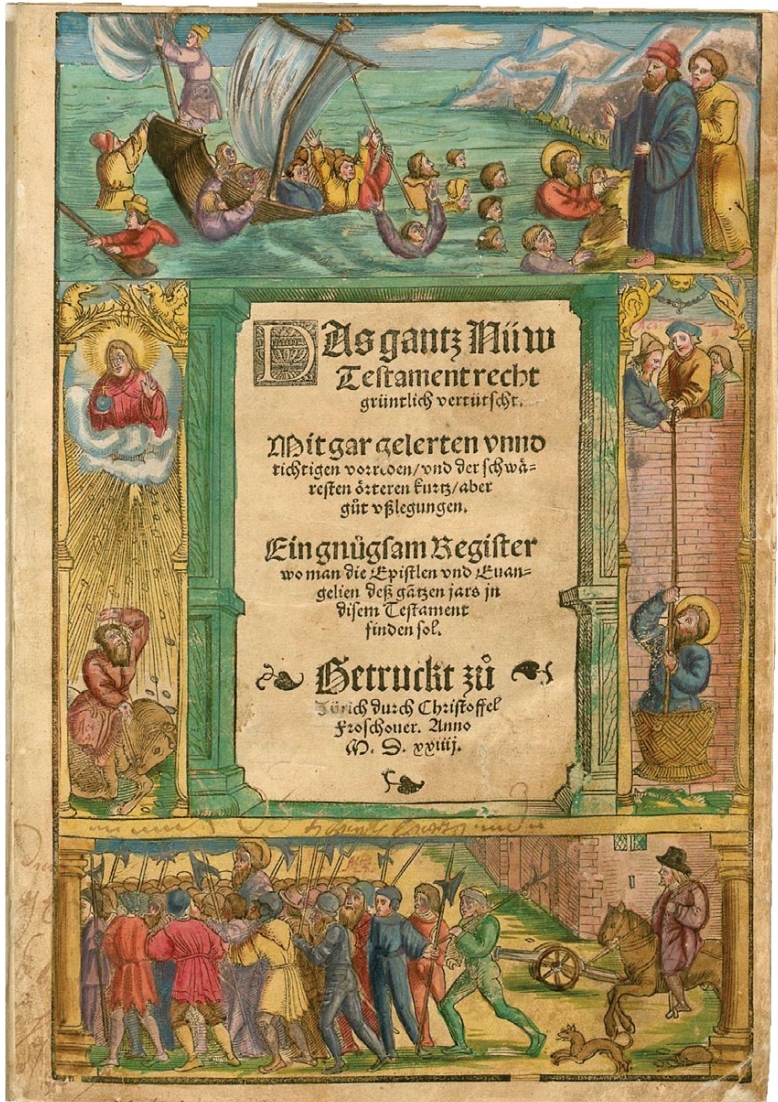 DAs gantz Nüw
Testament recht
grüntlich vertütscht.
Mit gar gelerten vnnd
richtigen vorreden/vnd der schwä-
resten örteren kurtz/aber
gůt vßlegungen.
Ein gnůgsam Register
wo man die Epistlen vnd Euan-
gelien deß gātzen jars jn
disem Testament
finden sol.
Getruckt zů
Zürich durch Christoffel
Froschouer. Anno
M. D. xxiiij.